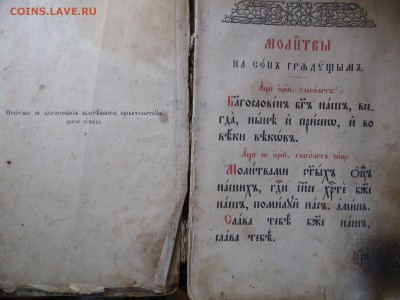 COINS.LAVE.RU
Печатано съ благословенїѧ свѧтѣйшагѡ правительствую
щагѡ сѵнода.
МОЛИ҃ТВЫ
НА СО́НЪ ГРѦДꙋ́ЩЫМЪ.
А҆́ще і҆ере́й, глаго́летъ:
Благослове́нъ бг҃ъ на́шъ, все-
гда̀, ны́нѣ и҆ при́снѡ, и҆ во
вѣ́ки вѣкѡ́въ.
А҆́ще не і҆ере́й, глаго́летъ си́це:
Моли́твами ст҃ы́хъ ѻ҆тє́цъ
на́шихъ, гдⷭ҇и і҆и҃се хрⷭ҇тѐ бж҃е
на́шъ, поми́лꙋй на́съ. а҆ми́нь.
Сла́ва тебѣ̀ бж҃е на́шъ,
сла́ва тебѣ̀.